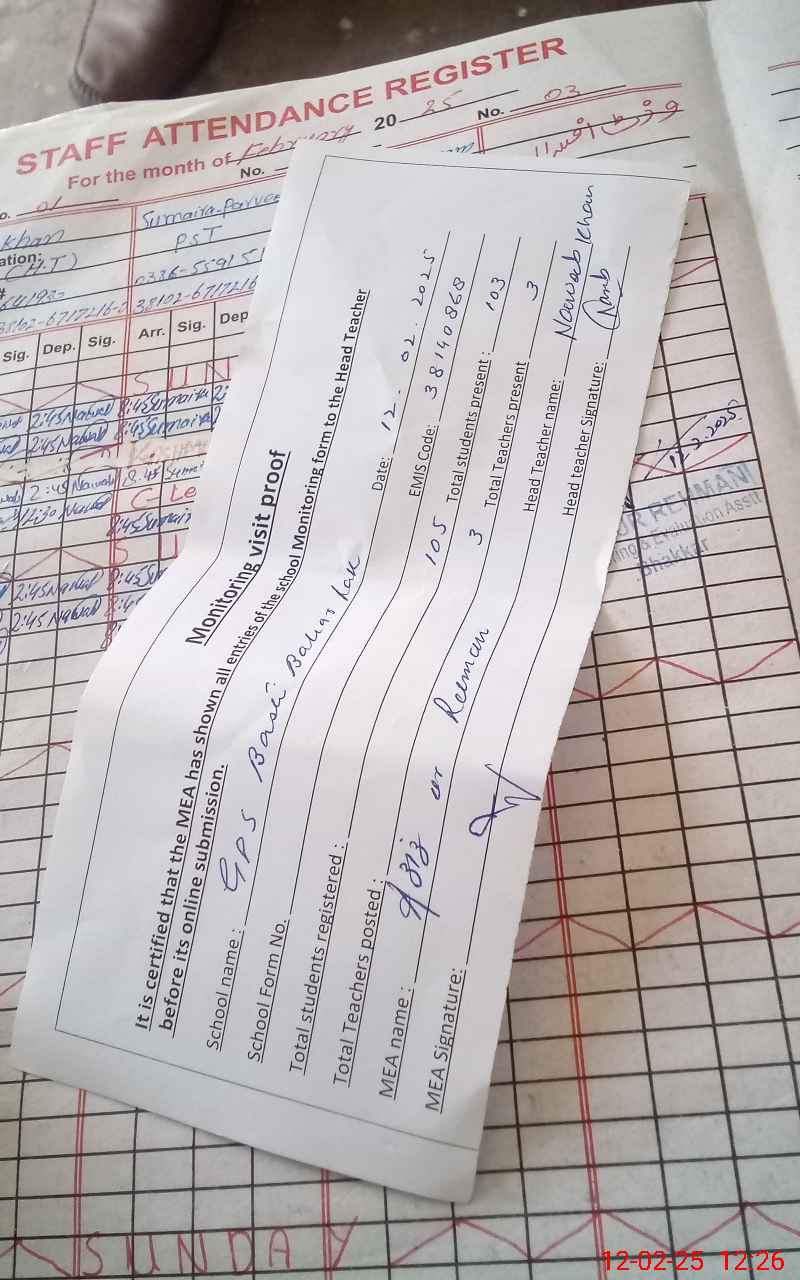 STAFF ATTENDANCE REGISTER
For the month of February 20 25
No. 01
No.
No. 03
وزٹ آفیسرز
Khan
Sumaira Parveen
ation:
(H.T)
PST
0336-55915
38102-6717216-0
38102-6717216
Sig. Dep. Sig. Arr. Sig. Dep
SUN
2:45 Nawab 8:45 Sumaira 2:
2:45 Nawab 8:45 Sumaira
2:45 Nawab 8:45 Sumai
12:30 Nawab C Le
8:45 Sumair
S U
2:45 Nawab 8:45 Su
2:45 Nawab 8:4
Monitoring visit proof
It is certified that the MEA has shown all entries of the school Monitoring form to the Head Teacher
before its online submission.
School name: GPS Basti Bahar Date: 12.02.2025
School Form No. EMIS Code: 38140868
Total students registered: 105 Total students present: 103
Total Teachers posted: 3 Total Teachers present 3
MEA name: Aziz ur Rehman Head Teacher name: Nawab Khan
MEA Signature: Head teacher Signature:
12-2-2025
UR REHMANI
ing & Evaluation Asstt
Bhakkar
SUNDAY
12-02-25 12:26